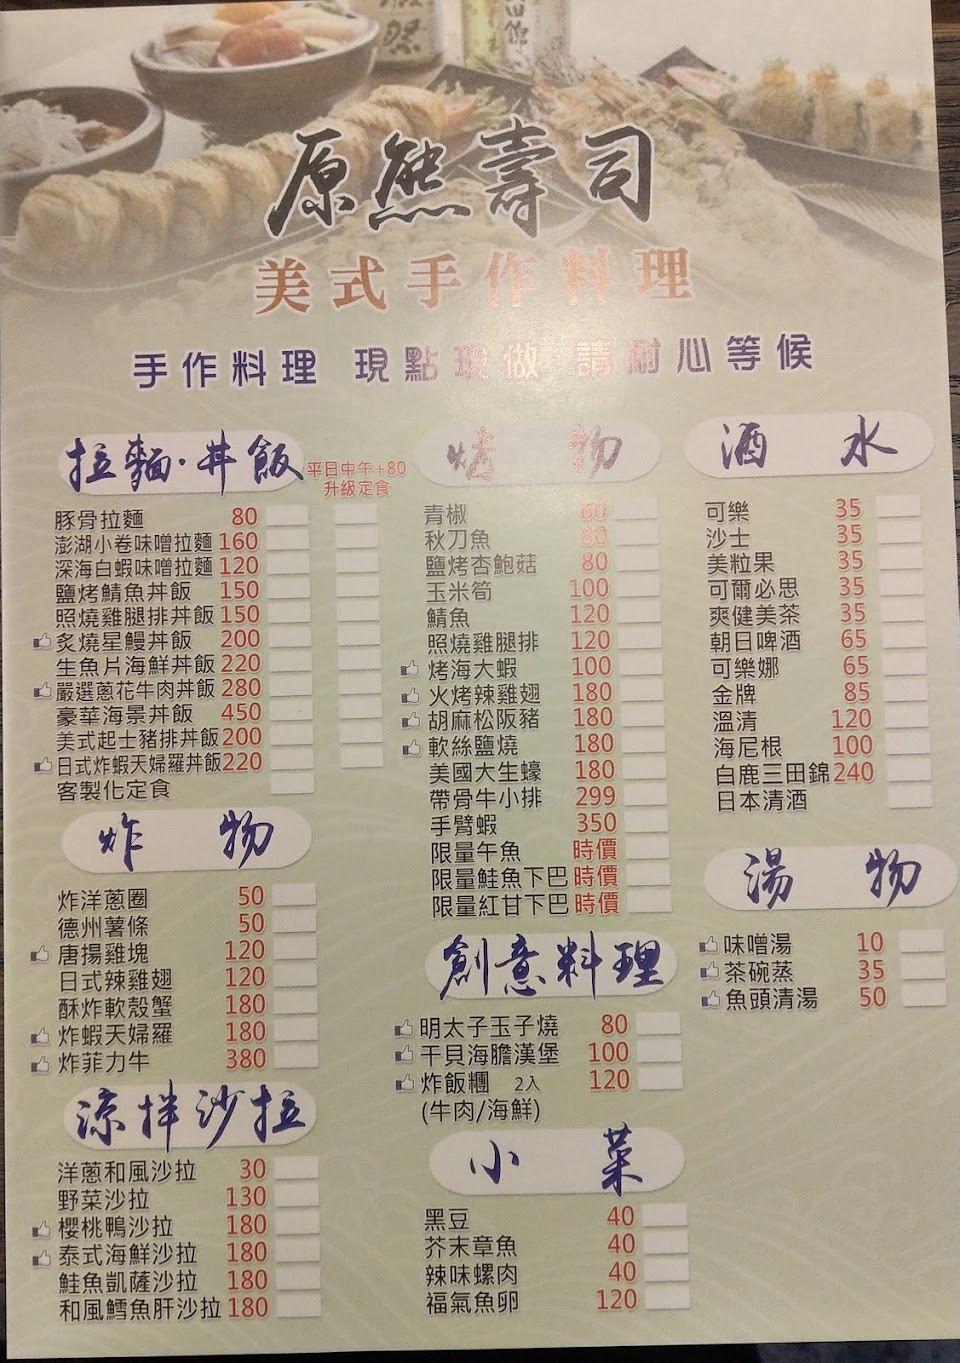 原熊壽司
美式手作料理
手作料理 現點現做 請耐心等候
拉麵·丼飯
平日中午+80
升級定食
豚骨拉麵 80
澎湖小卷味噌拉麵 160
深海白蝦味噌拉麵 120
鹽烤鯖魚丼飯 150
照燒雞腿排丼飯 150
炙燒星鰻丼飯 200
生魚片海鮮丼飯 220
嚴選蔥花牛肉丼飯 280
豪華海景丼飯 450
美式起士豬排丼飯 200
日式炸蝦天婦羅丼飯 220
客製化定食
炸物
炸洋蔥圈 50
德州薯條 50
唐揚雞塊 120
日式辣雞翅 120
酥炸軟殼蟹 180
炸蝦天婦羅 180
炸菲力牛 380
涼拌沙拉
洋蔥和風沙拉 30
野菜沙拉 130
櫻桃鴨沙拉 180
泰式海鮮沙拉 180
鮭魚凱薩沙拉 180
和風鱈魚肝沙拉 180
烤物
青椒 60
秋刀魚 80
鹽烤杏鮑菇 80
玉米筍 100
鯖魚 120
照燒雞腿排 120
烤海大蝦 100
火烤辣雞翅 180
胡麻松阪豬 180
軟絲鹽燒 180
美國大生蠔 180
帶骨牛小排 299
手臂蝦 350
限量午魚 時價
限量鮭魚下巴 時價
限量紅甘下巴 時價
創意料理
明太子玉子燒 80
干貝海膽漢堡 100
炸飯糰 2入 120
(牛肉/海鮮)
小菜
黑豆 40
芥末章魚 40
辣味螺肉 40
福氣魚卵 120
酒水
可樂 35
沙士 35
美粒果 35
可爾必思 35
爽健美茶 35
朝日啤酒 65
可樂娜 65
金牌 85
溫清 120
海尼根 100
白鹿三田錦 240
日本清酒
湯物
味噌湯 10
茶碗蒸 35
魚頭清湯 50